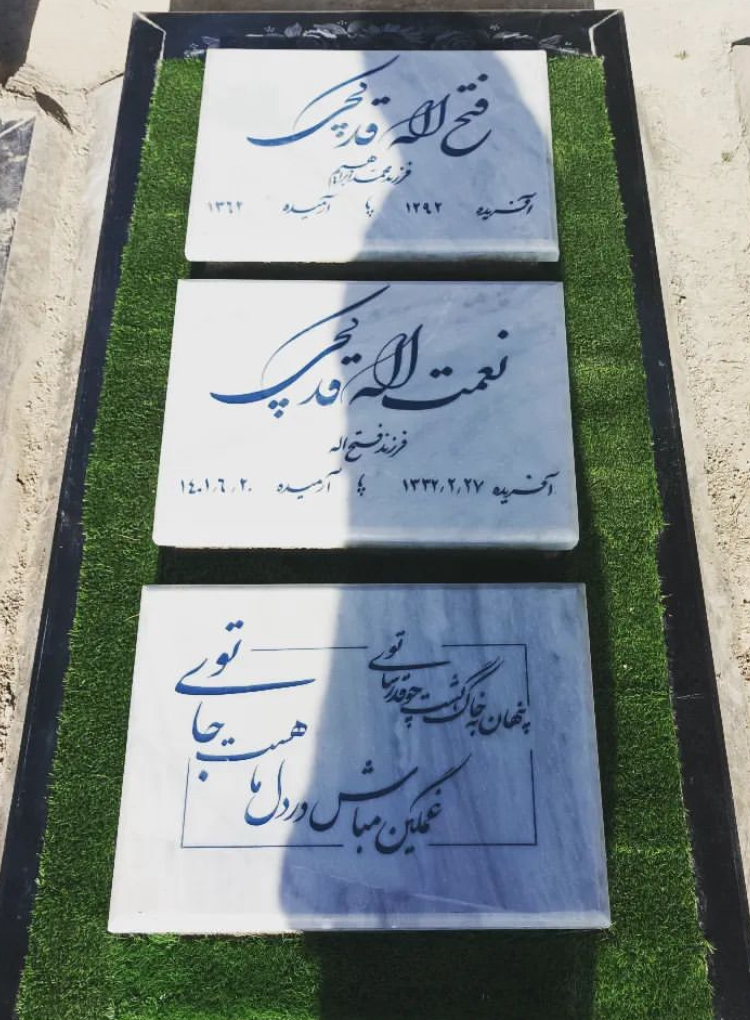 فتح اله قدیمی
فرزند محمد ابراهیم
آفریده ۱۲۹۲ پا آرمیده ۱۳۶۲
نعمت اله قدیمی
فرزند فتح اله
آفریده ۱۳۳۲٫۲٫۲۷ پا آرمیده ۱۴۰۱٫۶٫۲۰
پنهان به خاک گشت چو قد رسای توری
غمگین مباش در دل ما هست جای توری